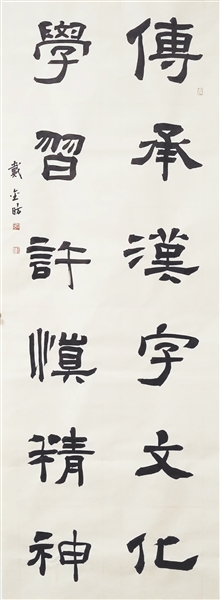 傳承漢字文化
學習許慎精神
戴金時